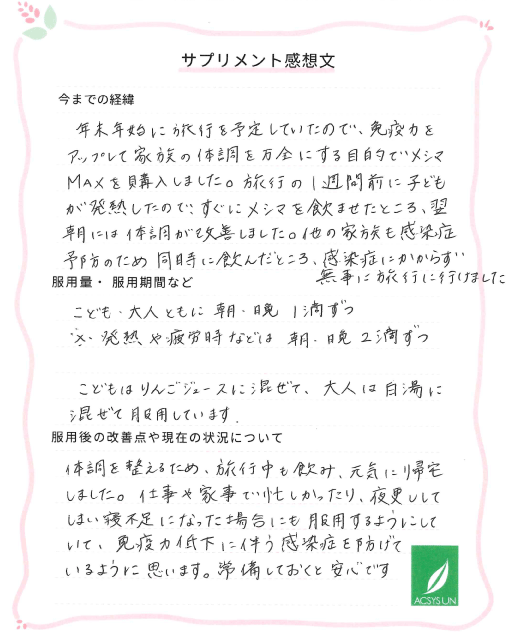 サプリメント感想文
今までの経緯
年末年始に旅行を予定していたので、免疫力を
アップして家族の体調を万全にする目的でメシマ
MAXを購入しました。旅行の1週間前に子ども
が発熱したので、すぐにメシマを飲ませたところ、翌
朝には体調が改善しました。他の家族も感染症
予防のため同時に飲んだところ、感染症にかからず
無事に旅行に行けました
服用量・服用期間など
こども・大人ともに 朝・晩 1滴ずつ
※発熱や疲労時などは 朝・晩 2滴ずつ
こどもはりんごジュースに混ぜて、大人は白湯に
混ぜて服用しています。
服用後の改善点や現在の状況について
体調を整えるため、旅行中も飲み、元気に帰宅
しました。仕事や家事で忙しかったり、夜更しして
しまい寝不足になった場合にも服用するようにして
いて、免疫力低下に伴う感染症を防げて
いるように思います。常備しておくと安心です
ACSYSUN